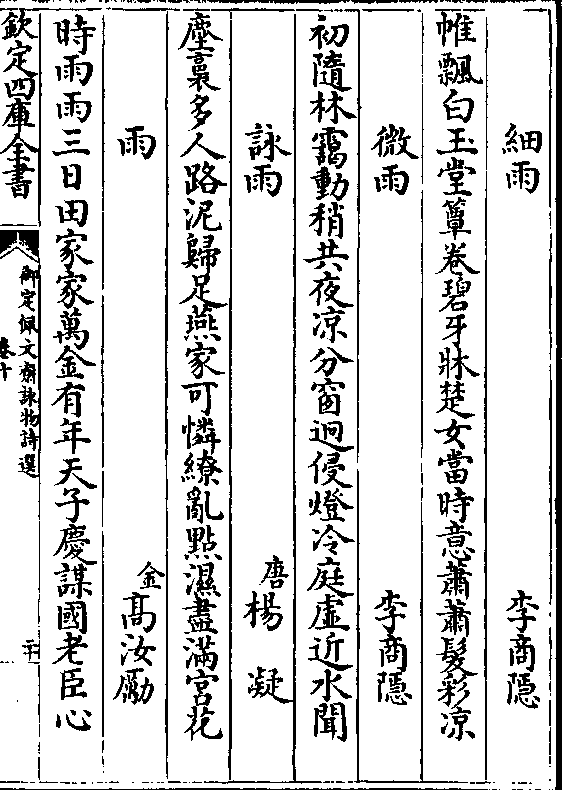 細雨　李商隱
帷飄白玉堂簟卷碧牙牀楚女當時意蕭蕭髮彩凉
微雨　李商隱
初隨林靄動稍共夜凉分窗迥侵燈冷庭虛近水聞
詠雨　唐楊凝
塵裏多人路泥歸足燕家可憐繚亂點濕盡滿宮花
雨　金高汝勵
時雨雨三日田家家萬金有年天子慶謀國老臣心
欽定四庫全書　御定佩文齋詠物詩選　卷十　二十